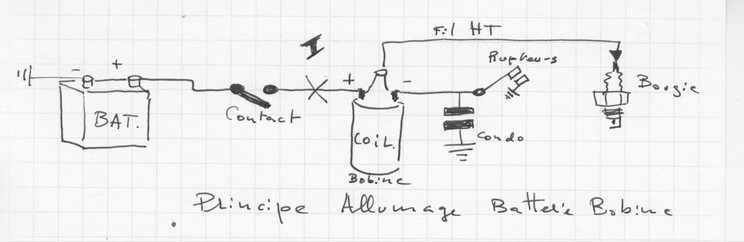 Fil HT
I
Rupteurs
- +
+ -
Bougie
BAT.
Contact
COIL
Condo
Bobine
Principe Allumage Batterie Bobine